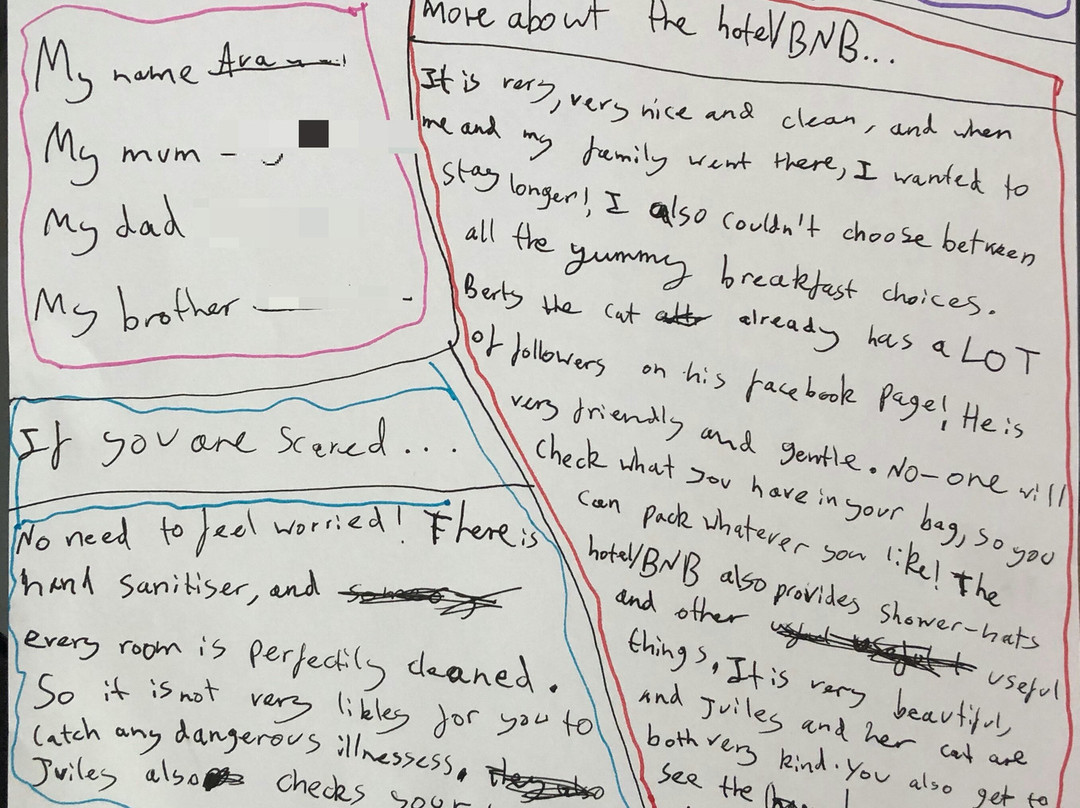 My name Ava
My mum -
My dad
My brother
If you are scared...
No need to feel worried! There is
hand sanitiser, and
every room is perfectily cleaned.
So it is not very likley for you to
catch any dangerous illnessess.
Juiles also checks your
More about the hotel/BNB...
It is very, very nice and clean, and when
me and my family went there, I wanted to
stay longer!, I also couldn't choose between
all the yummy breakfast choices.
Berty the cat already has a LOT
of followers on his facebook page! He is
very friendly and gentle. No-one will
check what you have in your bag, so you
can pack whatever you like! The
hotel/BNB also provides shower-hats
and other useful
things. It is very beautiful,
and Juiles and her cat are
both very kind. You also get to
see the